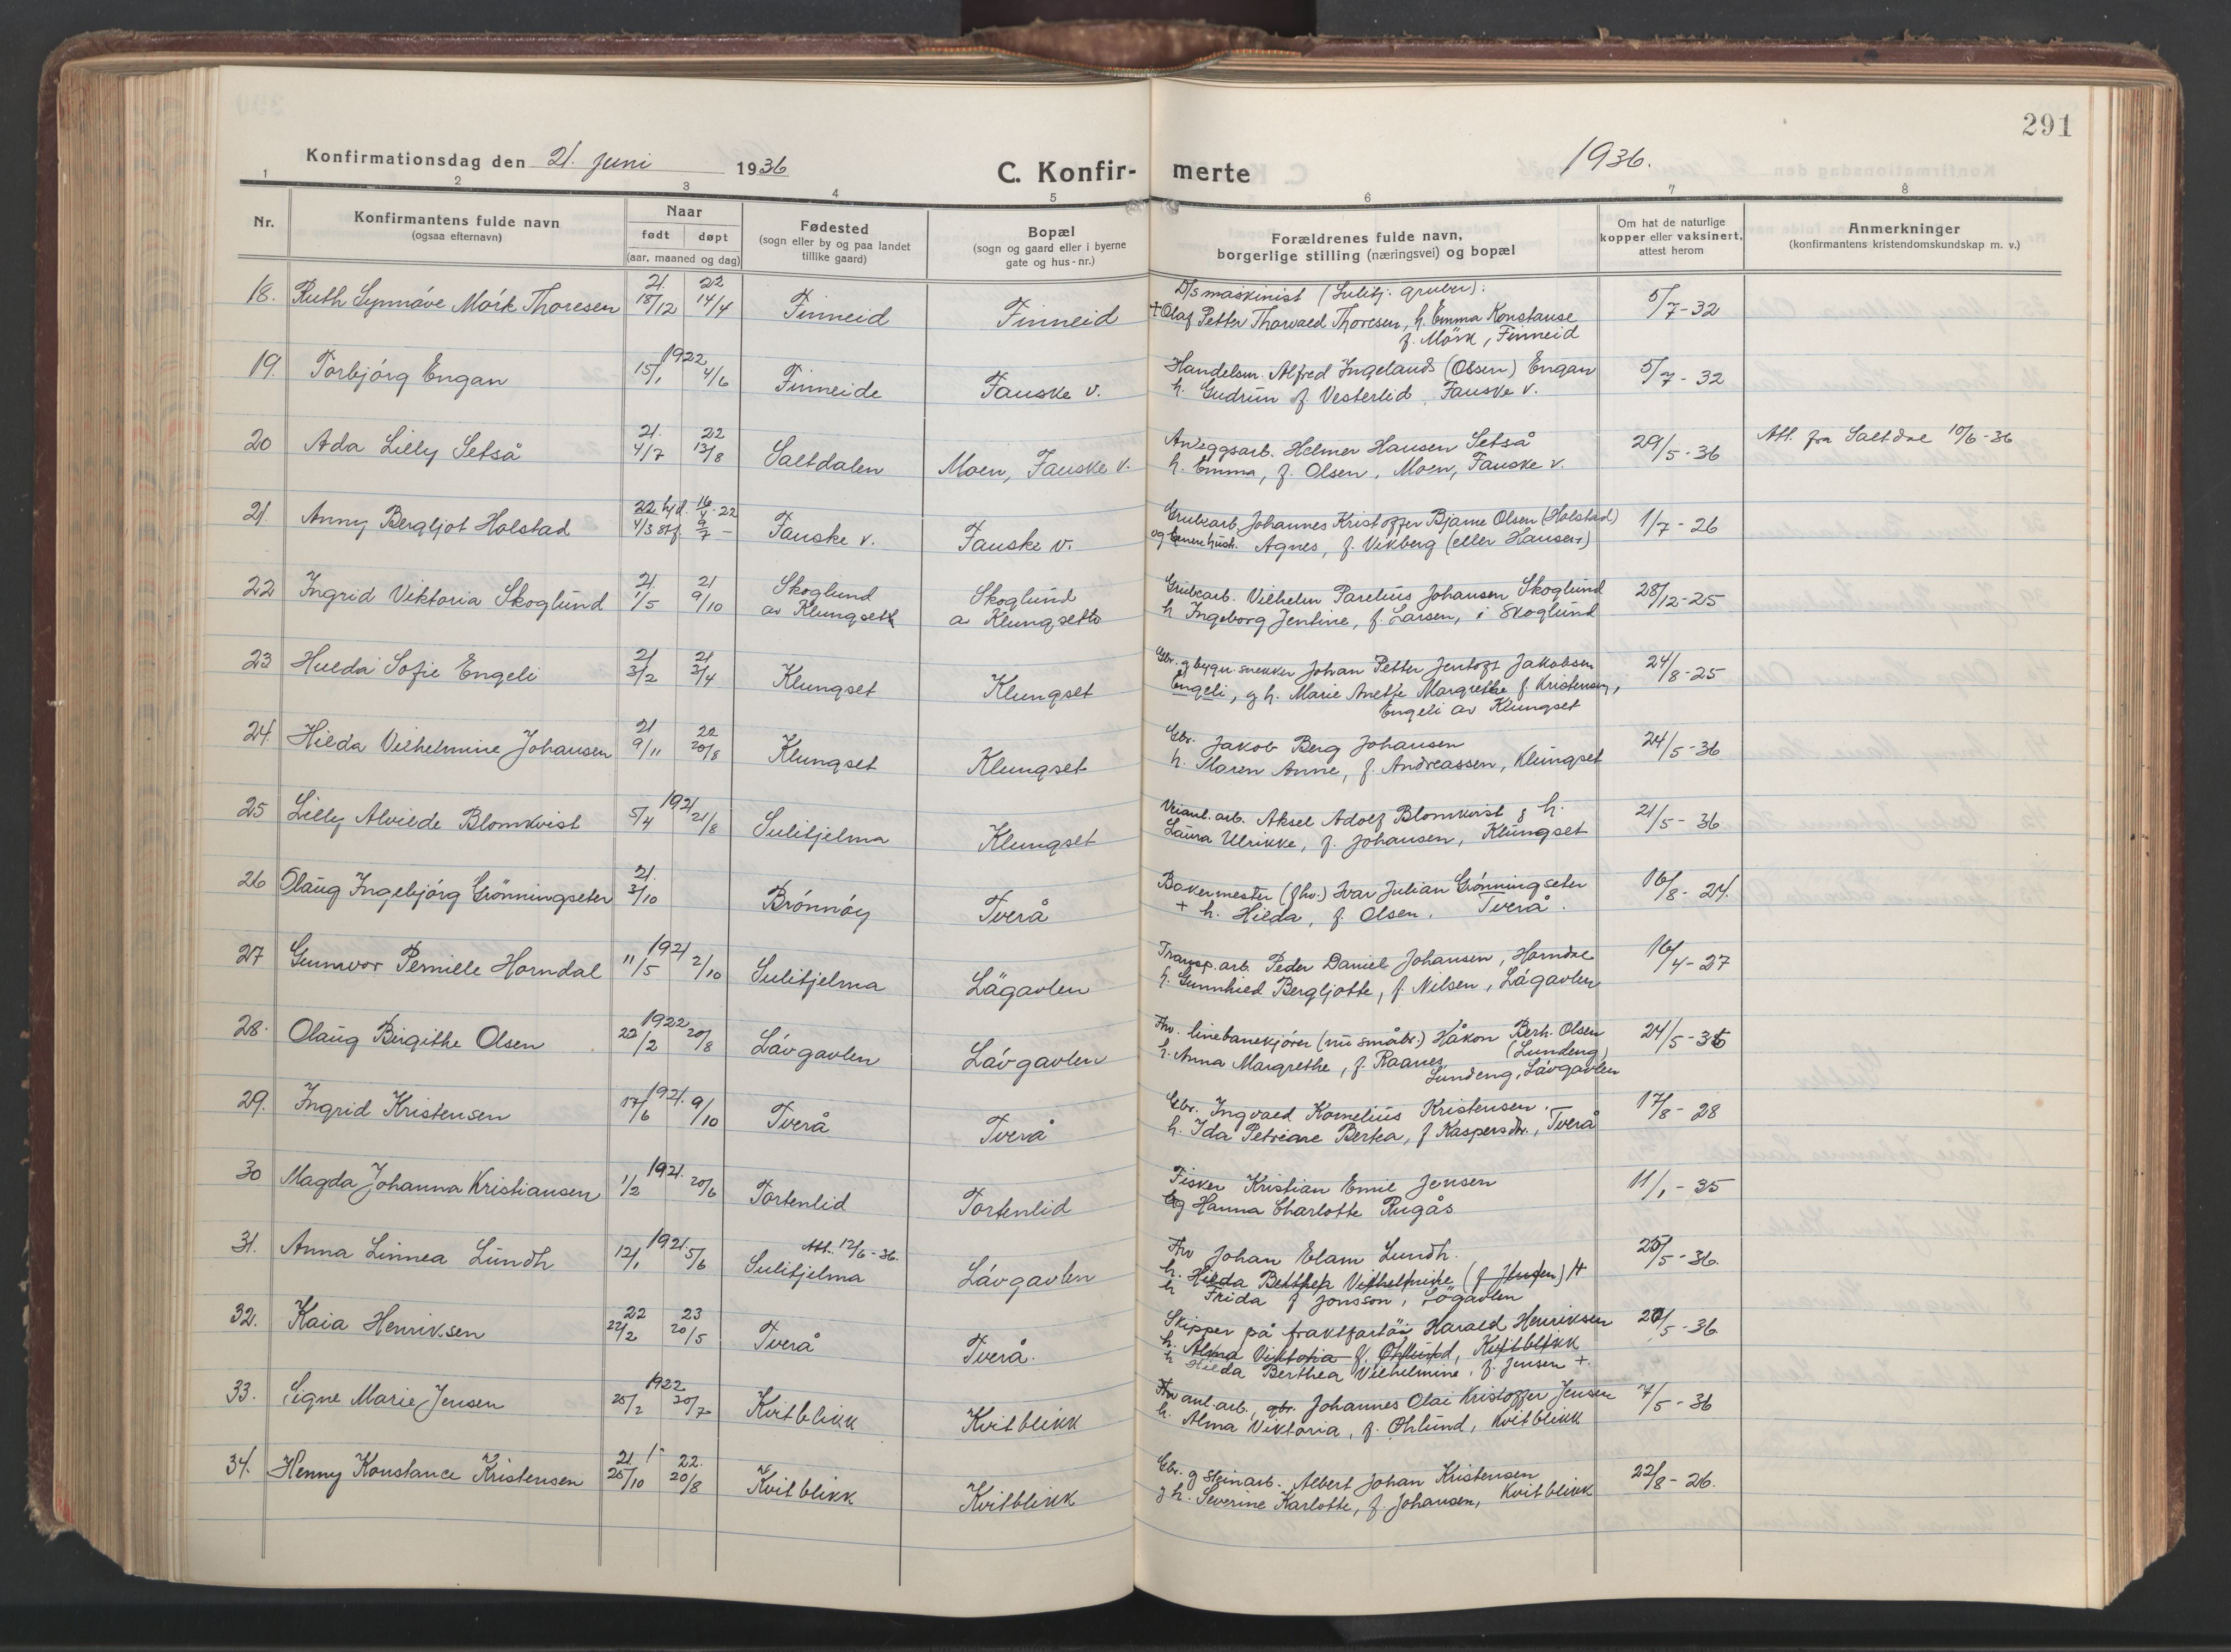 291
Konfirmationsdag den 21. juni 1936
C. Konfir- merte
1936.
1 2 3 4 5 6 7 8
Nr.
Konfirmantens fulde navn
(ogsaa efternavn)
Naar
født døpt
(aar, maaned og dag)
Fødested
(sogn eller by og paa landet
tillike gaard)
Bopæl
(sogn og gaard eller i byerne
gate og hus-nr.)
Forældrenes fulde navn,
borgerlige stilling (næringsvei) og bopæl
Om hat de naturlige
kopper eller vaksinert,
attest herom
Anmerkninger
(konfirmantens kristendomskundskap m. v.)
D/s maskinist (Sulitj. gruber):
18. Ruth Synnöve Mörk Thoresen 21. 18/12 22 14/4 Finneid Finneid +Olaf Petter Thorvald Thoresen, h. Emma Konstanse 5/7-32
f. Mörk, Finneid
19. Torbjörg Engan 1922 15/1 4/6 Finneide Fauske v. Handelsm. Alfred Ingelands (Olsen) Engan 5/7-32
h. Gudrun f. Vesterlid, Fauske v.
20 Ada Lilly Setså 21. 4/7 22 13/8 Saltdalen Moen, Fauske v. Anleggsarb. Helmer Hansen Setså 29/5-36 Att. fra Saltdal 10/6-36
h. Emma, f. Olsen, Moen, Fauske v.
21. Anny Bergljot Holstad 22 4/3 hjd. 16/4-22 stf. 9/7 - Fauske v. Fauske v. Grubearb. Johannes Kristoffer Bjarne Olsen (Holstad) 1/7-26
og hust. Agnes, f. Vikberg (eller Hansen)
22 Ingrid Viktoria Skoglund 21. 1/5 21 9/10 Skoglund Skoglund Grubearb. Vilhelm Parelius Johansen Skoglund 28/12-25
av Klungset a Klungset h Ingeborg Jentine, f. Larsen, i Skoglund
23 Hulda Sofie Engeli 21 3/2 21 3/4 Klungset Klungset Gbr. g bygn. snekker Johan Petter Jentoft Jakobsen 24/8-25
Engeli, g h. Marie Anette Margrethe f. Kristensen,
Engeli av Klungset
24. Hilda Vilhelmine Johansen 21 9/11 22 20/8 Klungset Klungset Gbr. Jakob Berg Johansen 24/5-36
h. Maren Anne, f. Andreassen, Klungset
25 Lilly Alvilde Blomkvist 1921 5/4 21/8 Sulitjelma Klungset Veianl. arb. Aksel Adolf Blomkvist g h. 21/5-36
Laura Ulrikke, f. Johansen, Klungset
26 Olaug Ingebjörg Grönningseter 21. 3/10 Brönnöy Tverå Bakermester (fhv.) Ivar Julian Grönningseter 16/8-24.
+ h. Hilda, f. Olsen. Tverå.
27 Gunnvor Pernille Horndal 1921 11/5 2/10 Sulitjelma Lågavlen Transp. arb. Peder Daniel Johansen, Horndal 16/4-27
h. Gunnhild Bergljotte, f. Nilsen, Lågavlen
28. Olaug Birgithe Olsen 1922 22/2 20/8 Låvgavlen Låvgavlen Fhv. linebanekjörer (nu småbr.) Håkon Berh. Olsen 24/5-36
(Lundeng)
h. Anna Margrethe, f. Raanes Lundeng, Låvgavlen
29. Ingrid Kristensen 1921. 17/6 9/10 Tverå Tverå Gbr. Ingvald Kornelius Kristensen. 17/8-28
h. Ida Petriane Bertea, f Kaspersdtr., Tverå
30 Magda Johanna Kristiansen 1921. 1/2 20/6 Tortenlid Tortenlid Fisker Kristian Emil Jensen 11/1-35
og Hanna Charlotte Rugås
31. Anna Linnea Lundh 1921 12/1 5/6 Att. 12/6-36. Sulitjelma Låvgavlen Fhv Johan Elam Lundh. 25/5-36.
h. Hilda Berthea Vilhelmine (f Jensen) H
h Frida f Jonsson, Lögavlen
32. Kaia Henriksen 22 22/2 23 20/5 Tverå Tverå. Skipper på fraktfartöi Harald Henriksen 20/5-36
h. Alma Viktoria f. Öhlund, Kvitblikk
h Hilda Berthea Vilhelmine, f. Jensen +
33. Signe Marie Jensen 1922 25/2 30/7 Kvitblikk Kvitblikk Fhv anl. arb., gbr. Johannes Olai Kristoffer Jensen 7/5-36
h. Alma Viktoria, f. Öhlund, Kvitblikk
34. Henny Konstance Kristensen 21. 25/10 22. 20/8 Kvitblikk Kvitblikk Gbr. g steinarb. Albert Johan Kristensen 22/8-26.
g h. Severine Karlotte, f. Johansen, Kvitblikk